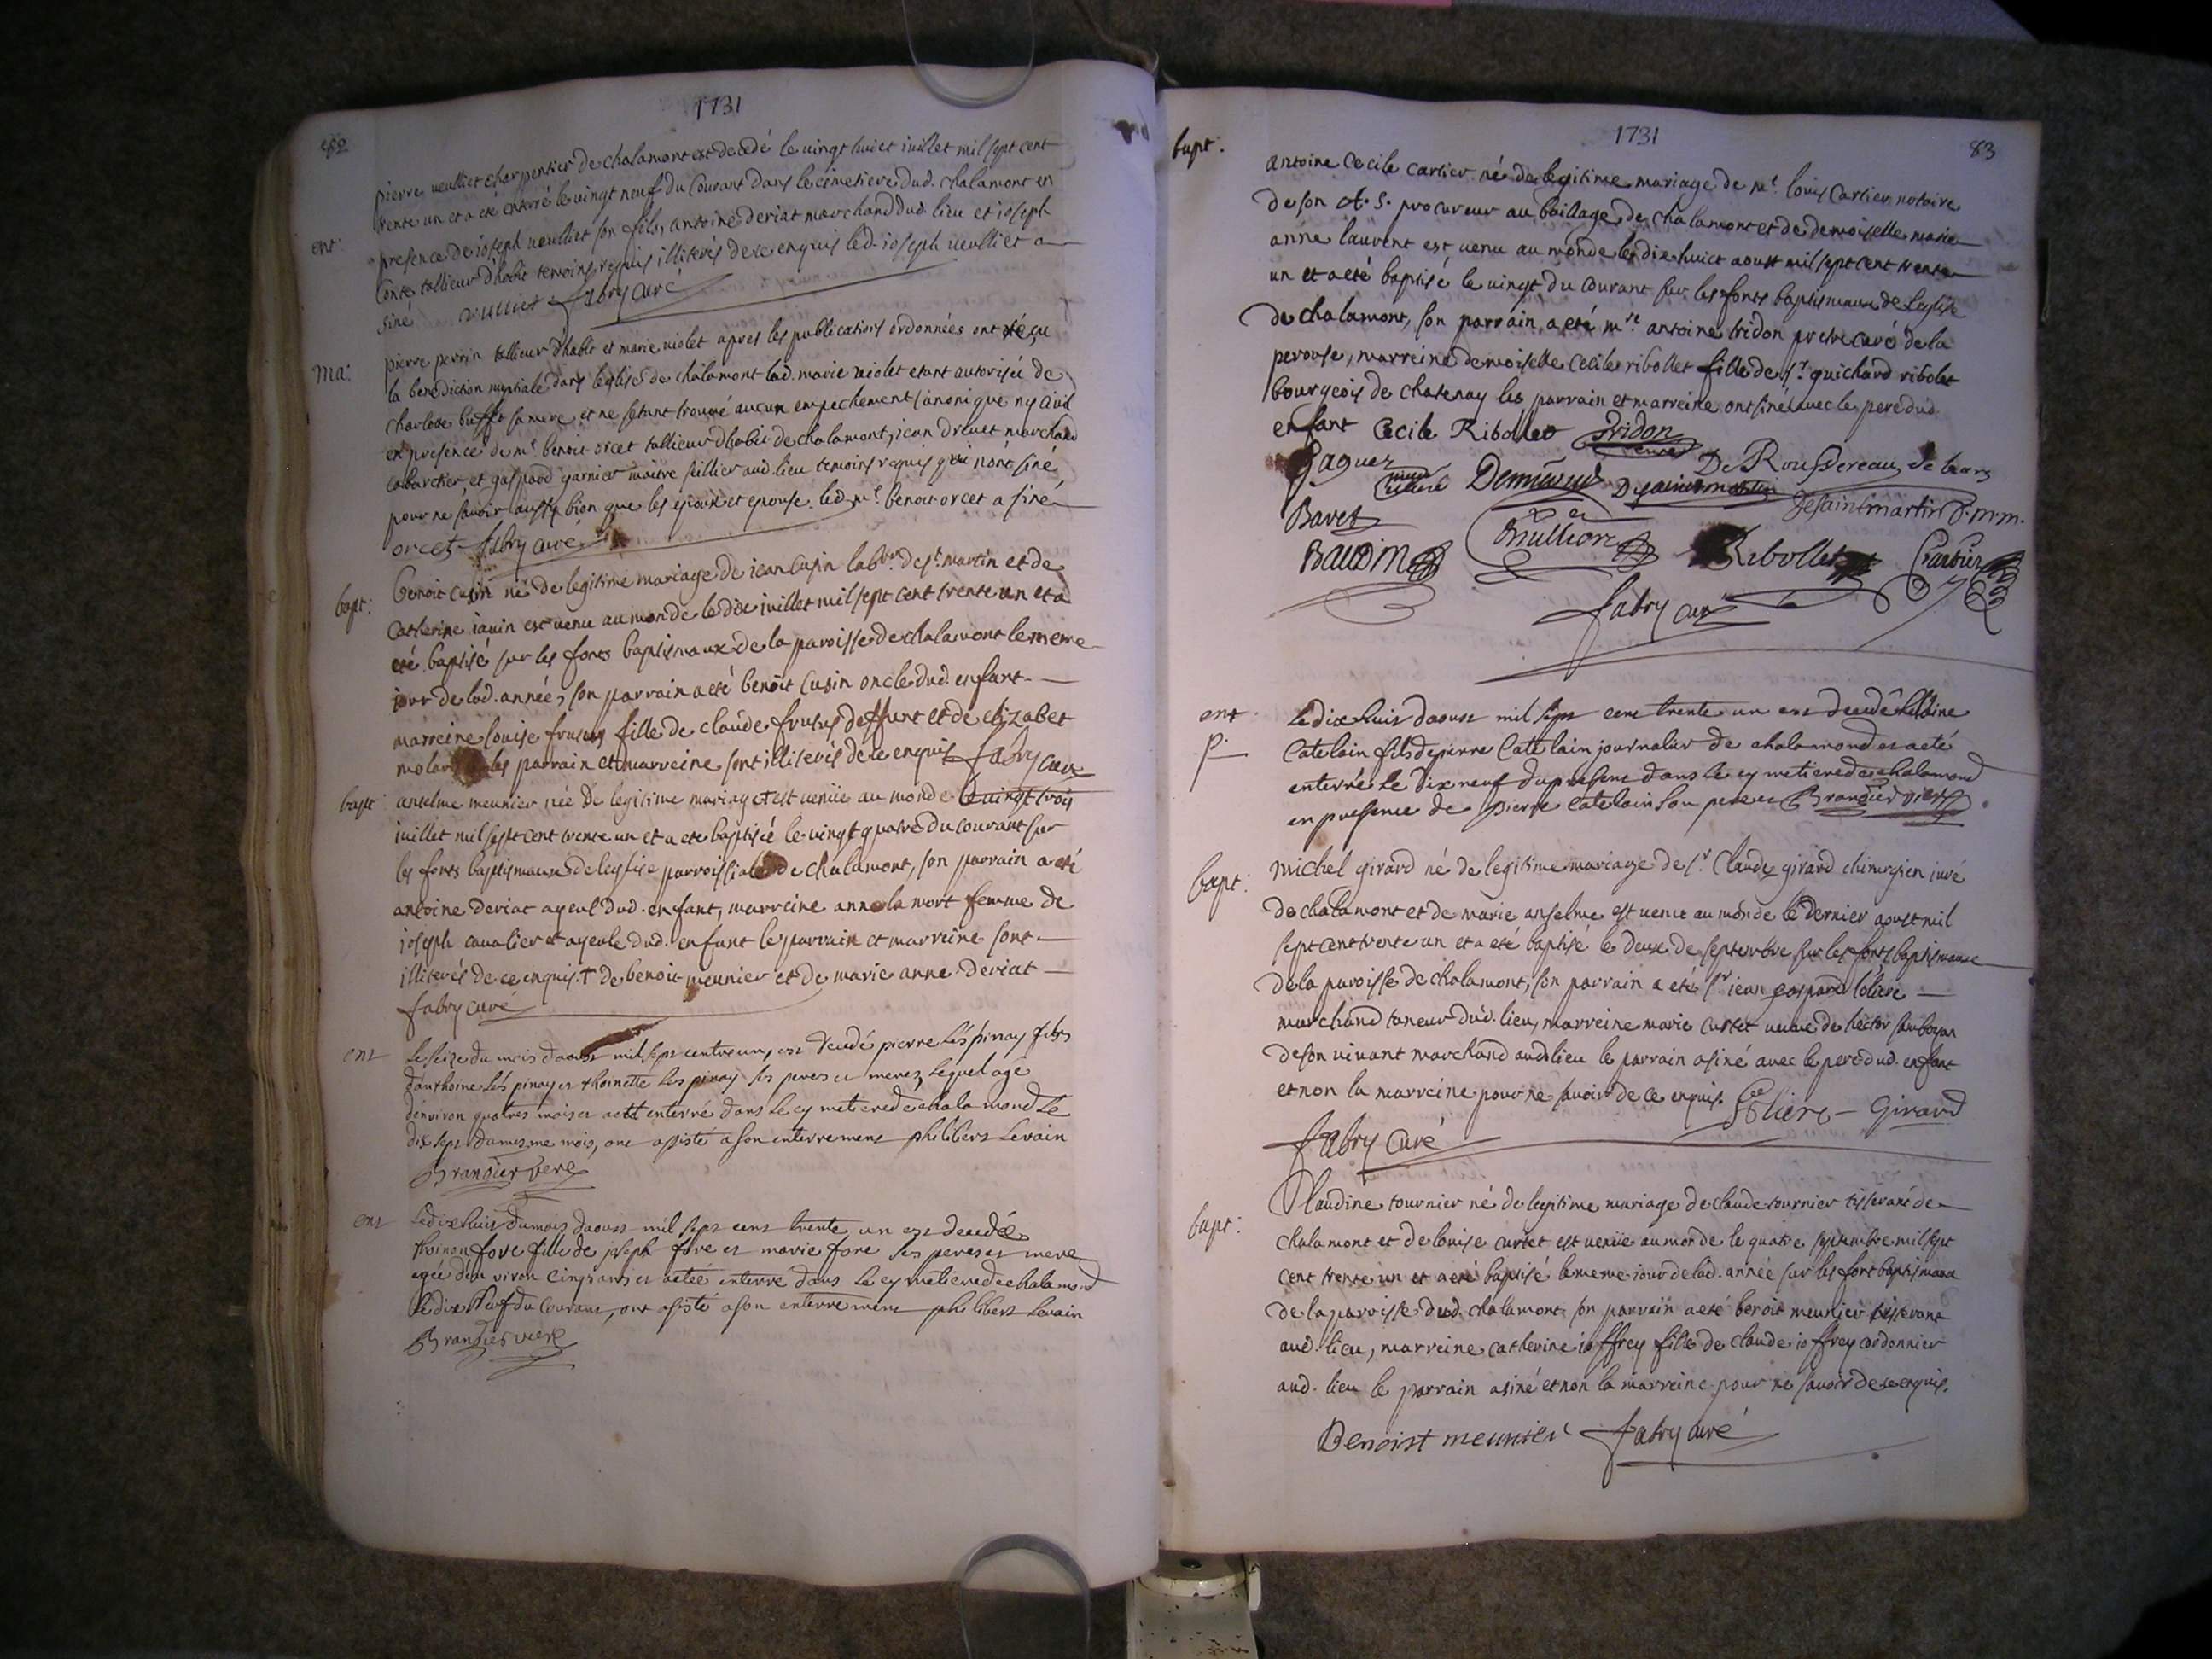 1731
82
pierre veulliet charpentier de chalamont est decedé le vingt huict iuillet mil sept cent
trente un et a eté enterré le vingt neuf du Courant dans le cimetiere dud. chalamont en
ent:
presence de ioseph veulliet son fils, antoine deriat marchand dud. lieu et ioseph
Conte tallieur d'habit temoins requis illiterés de ce enquis led. ioseph veulliet a
siné vulliet fabry curé
ma:
pierre perrin tallieur d'habit et marie violet apres les publications ordonnées ont reçu
la benediction nuptiale dans leglise de chalamont lad. marie violet etant autorisée de
charlotte sa mere, et ne setant trouvé aucun empechement canonique ny civil
en presence de mr. benoit orcet tallieur dhabit de chalamont, iean drevet marchand
cabaretier, et gaspard garnier maitre sellier aud. lieu temoins requis qui n'ont siné
pour ne savoir aussy bien que les epoux et epouse. led. mr. benoit orcet a siné
orcet fabry curé
bapt:
benoit cusin né de legitime mariage de iean cusin labr. de st. martin et de
catherine iavin est venu au monde le dix iuillet mil sept cent trente un et a
eté baptisé sur les fonts baptismaux de la paroisse de chalamont le meme
iour de lad. année, son parrain a eté benoit Cusin oncle dud. enfant
marreine louise frusus fille de claude frusus deffunt et de elizabet
molar les parrain et marreine sont illiterés de ce enquis fabry curé
bapt
anselme meunier née de legitime mariage † est venüe au monde le vingt trois
iuillet mil sept cent trente un et a eté baptisée le vingt quatre du courant sur
les fonts baptismaux de leglise parroissiale de chalamont, son parrain a eté
antoine deriat ayeul dud. enfant, marreine anne la mort femme de
ioseph cavalier et ayeule dud. enfant les parrain et marreine sont
illiterés de ce enquis. † de benoit meunier et de marie anne deriat
fabry curé
ent
Le seize du mois daoust mil sept cent un, est decedé pierre Léspinay fils
d'anthoine Léspinay et thoinette Lespinay ses peres et meres, Lequel agé
d'environ quatres mois et a eté enterré dans Le cymetiere de chalamond Le
dix sept du mesme mois, ont assisté a son enterrement philibert Levain
Brangier vicre
ent
Le dix huit du mois daoust mil sept cent trente un est decedée
thoinon fore fille de joseph fore et marie fore ses peres et mere
agée d'en viron cinq ans et a etée enterré dans Le cymetiere de chalamond
Le dix neuf du Courant, ont asisté a son enterrement philibert Levain
Brangier vicre
1731
83
bapt:
antoine Cecile cartier né de legitime mariage de mr. louis Cartier notaire
de son A. S. procureur au baillage de chalamont et de demoiselle marie
anne laurent est venu au monde le dix huict aoust mil sept cent trente
un et a eté baptisé le vingt du courant sur les fonts baptismaux de leglise
de chalamont, son parrain a eté mre. antoine tridon pretre curé de la
perouse, marreine demoiselle Cecile ribollet fille de sr. guichard ribolet
bourgeois de chatenay les parrain et marreine ont siné avec le pere dud.
enfant Cecile Ribollet Tridon
De Roussereau de
Desaintmartin
Desaintmartin
Bavet
BAUDIN
Ribollet Cartier
fabry curé
ent
p.
Le dix huit daoust mil sept cent trente un est decedé
Catelain fils de pierre Catelain journalier de chalamond et a eté
enterré Le dix neuf du présent dans Le cymetiere de chalamond
en présence de pierre Catelain son pere et Brangier vicre
bapt:
michel girard né de legitime mariage de sr. Claude girard chirurgien iuré
de chalamont et de marie anselme est venu au monde le dernier aoust mil
sept cent trente un et a eté baptisé le deux de septembre sur les fonts baptismaux
de la paroisse de chalamont, son parrain a eté sr iean gaspard loliere
marchand taneur dud. lieu, marreine marie curtet veuve de hector
de son vivant marchand aud. lieu le parrain a siné avec le pere dud. enfant
et non la marreine pour ne savoir de ce enquis. Loliere Girard
fabry curé
bapt:
Claudine tournier né de legitime mariage de claude tournier tisserant de
chalamont et de louise curtet est venüe au monde le quatre septembre mil sept
cent trente un et a eté baptisé le meme iour de lad. année sur les font baptismaux
de la paroisse dud. chalamont son parrain a eté benoit meunier tisserant
aud. lieu, marreine catherine ioffrey fille de claude ioffrey cordonnier
aud. lieu le parrain a siné et non la marreine pour ne savoir de ce enquis.
Benoist meunier fabry curé